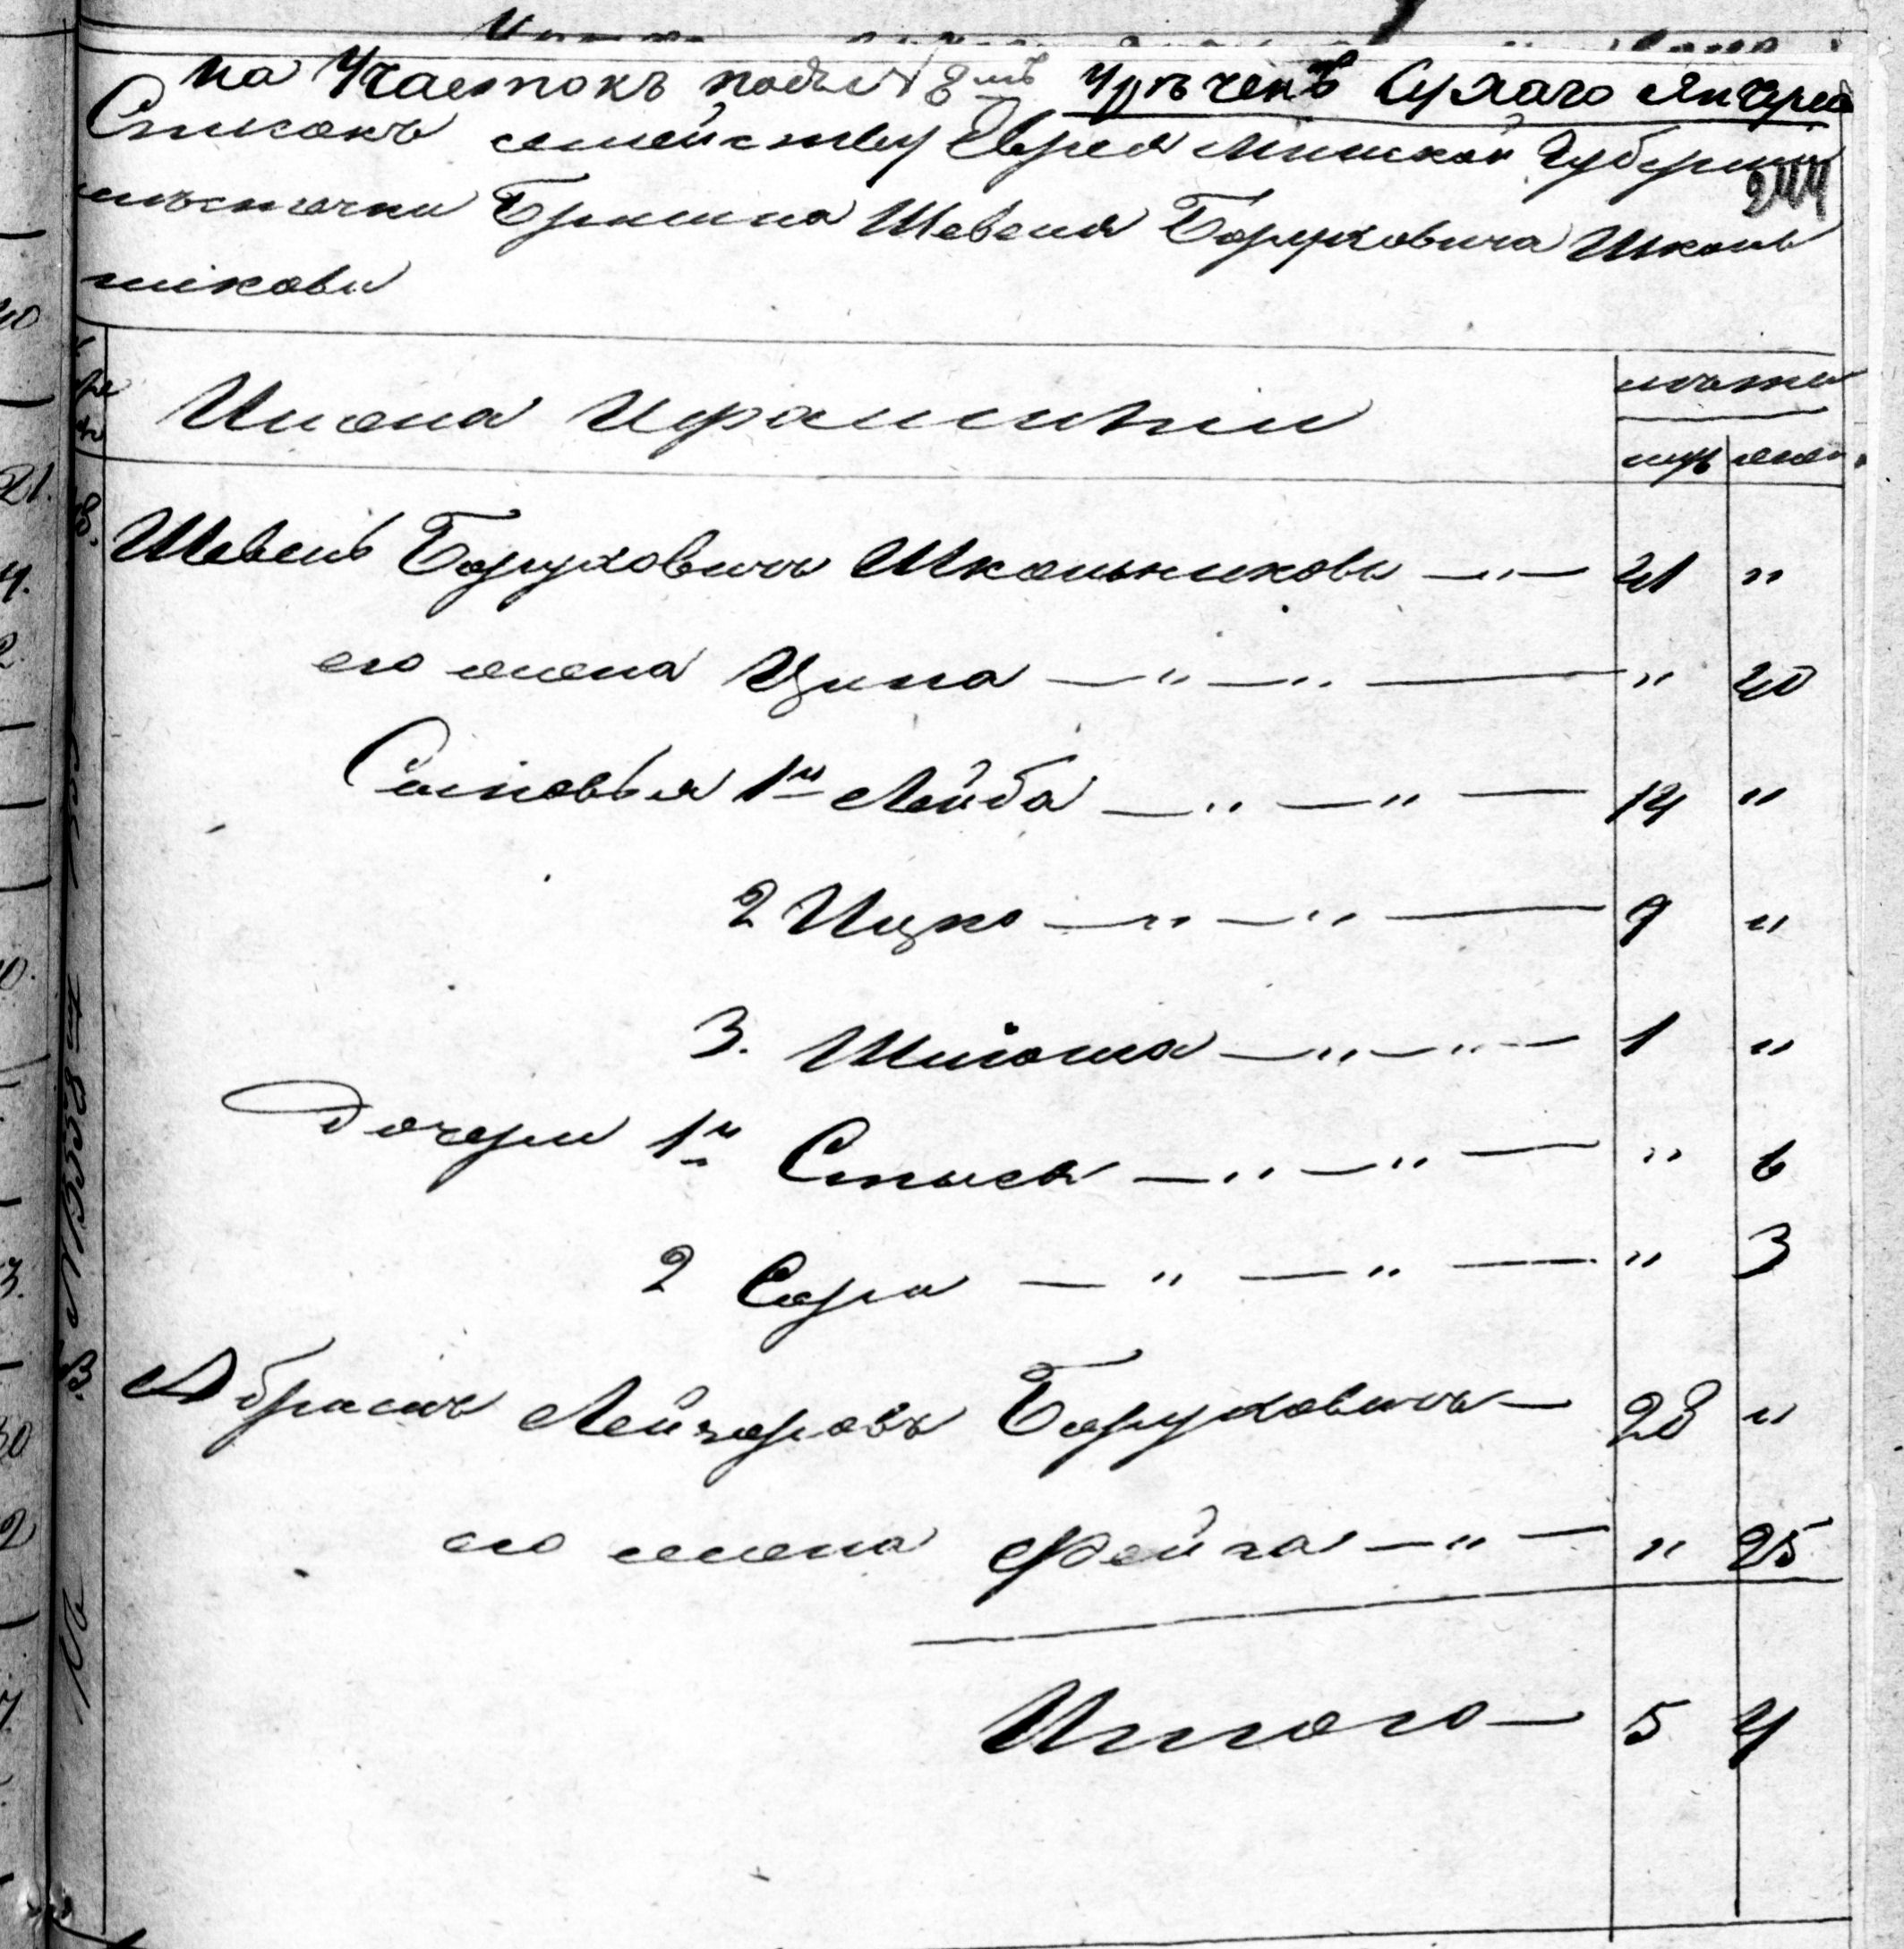 на Участокъ подъ № 8мъ Урпченъ Сухаго Янчура
Списокъ семейству Еврея Минской Губерніи
244
мѣстечки Брагина Шевеля Боруховича Школь
никова
Имена И фамиліи
лѣта
муж жен.
Шевель Боруховичъ Школьниковъ — " — 41 "
его жена Ципа — " — " — " 40
Сыновья 1й Лейба — " — " — 14 "
2 Ицко — " — " — 9 "
3. Шлiома — " — " — 1 "
Дочери 1я Стыся — " — " — " 6
2 Сора — " — " — " 3
Абрамъ Лейзеровъ Боруховичъ — 28 "
его жена Фейга — " — " 25
Итого — 5 4